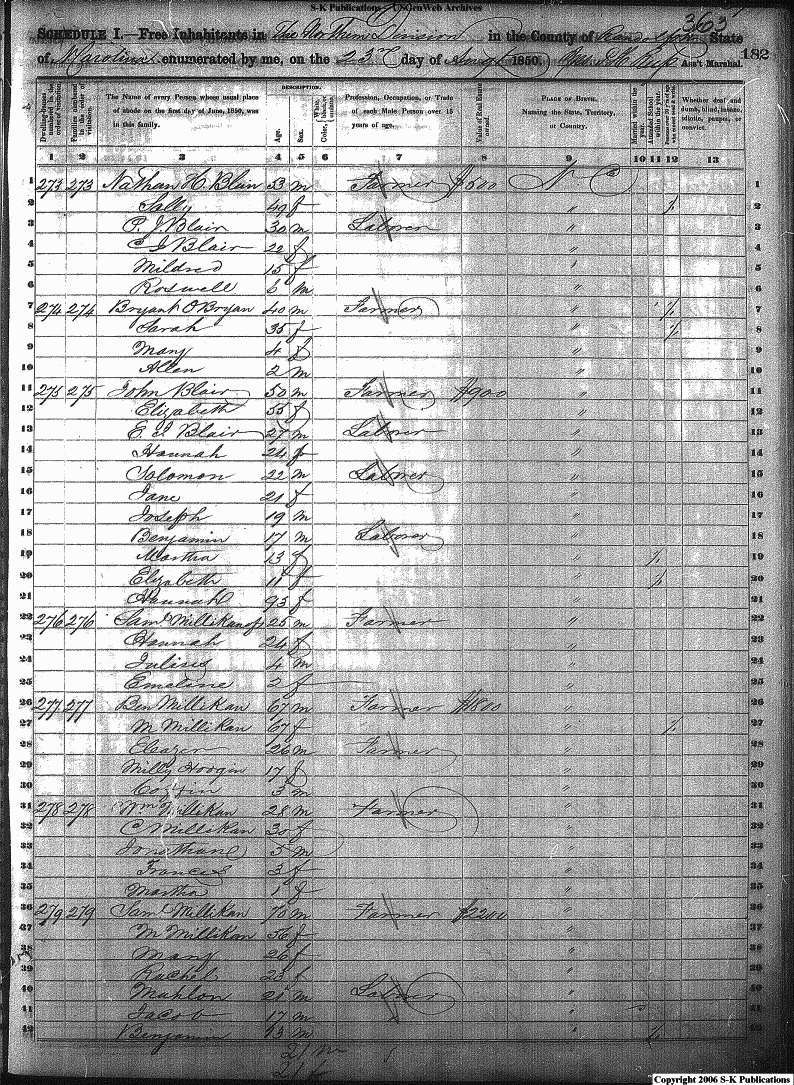 S-K Publications - USGenWeb Archives
363
SCHEDULE I.—Free Inhabitants in The Northern Division in the County of Randolph State
of N Carolina enumerated by me, on the 23rd day of Augt 1850. Ass't Marshal. 182
Dwelling-houses numbered in the order of visitation.
Families numbered in the order of visitation.
The Name of every Person whose usual place of abode on the first day of June, 1850, was in this family.
DESCRIPTION.
Age.
Sex.
White, black, or mulatto. Color,
Profession, Occupation, or Trade of each Male Person over 15 years of age.
Value of Real Estate owned.
PLACE OF BIRTH. Naming the State, Territory, or Country.
Married within the year.
Attended School within the year.
Persons over 20 y'rs of age who cannot read & write.
Whether deaf and dumb, blind, insane, idiotic, pauper, or convict.
1 2 3 4 5 6 7 8 9 10 11 12 13
1 273 273 Nathan H. Blair 53 m Farmer $500 N C 1
2 Sally 49 f " / 2
3 P. J. Blair 30 m Laborer " 3
4 C J Blair 22 f " 4
5 Mildred 15 f " 5
6 Roswell 6 m " 6
7 274 274 Bryant O Bryan 40 m Farmer " / 7
8 Sarah 35 f " / 8
9 Mary 4 f " 9
10 Allan 2 m " 10
11 275 275 John Blair 50 m Farmer $900 " 11
12 Elizabeth 55 f " 12
13 E. J. Blair 27 m Laborer " 13
14 Hannah 24 f " 14
15 Solomon 22 m Laborer " 15
16 Jane 21 f " 16
17 Joseph 19 m " 17
18 Benjamin 17 m Laborer " 18
19 Martha 13 f " / 19
20 Elizabeth 11 f " / 20
21 Hannah 95 f " 21
22 276 276 Saml Millikan 25 m Farmer " 22
23 Hannah 24 f " 23
24 Julius 4 m " 24
25 Emeline 2 f " 25
26 277 277 Ben Millikan 67 m Farmer $1800 " 26
27 M Millikan 67 f " / 27
28 Eleazer 26 m Farmer " 28
29 Milly Hodgin 17 f " 29
30 Coffin 3 m " 30
31 278 278 Wm Millikan 28 m Farmer " 31
32 C Millikan 30 f " 32
33 Jonathan 5 m " 33
34 Frances 3 f " 34
35 Martha 1 f " 35
36 279 279 Saml Millikan 70 m Farmer $2200 " 36
37 M Millikan 56 f " 37
38 Mary 26 f " 38
39 Rachel 23 f " 39
40 Mahlon 21 m Laborer " 40
41 Jacob 17 m " 41
42 Benjamin 13 m " / 42
21 m
21 f
Copyright 2006 S-K Publications